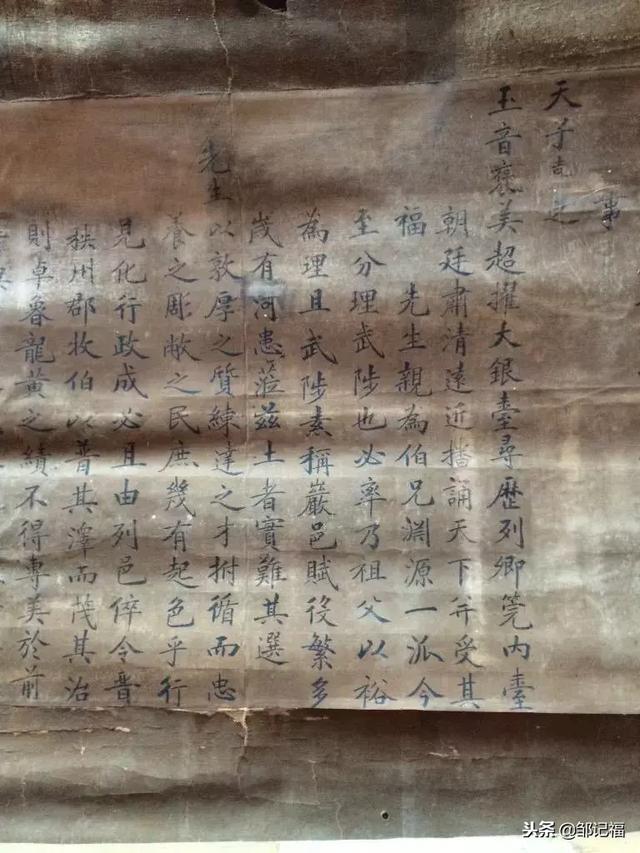 事
天子之
玉音襃美超擢大銀臺尋歷列卿筦内臺
朝廷肅清遠近播誦天下并受其
福 先生親為伯兄淵源一派今
至分理武陟也必率乃祖父以裕
為理且武陟素稱嚴邑賦役繁多
歲有河患蒞茲土者實難其選
先生以敦厚之質練達之才拊循而忠
養之彫敝之民庶幾有起色乎行
見化行政成必且由列邑倅令晉
秩州郡牧伯以普其澤而茂其治
則卓魯龍黃之績不得專美於前
头条 @邹记福